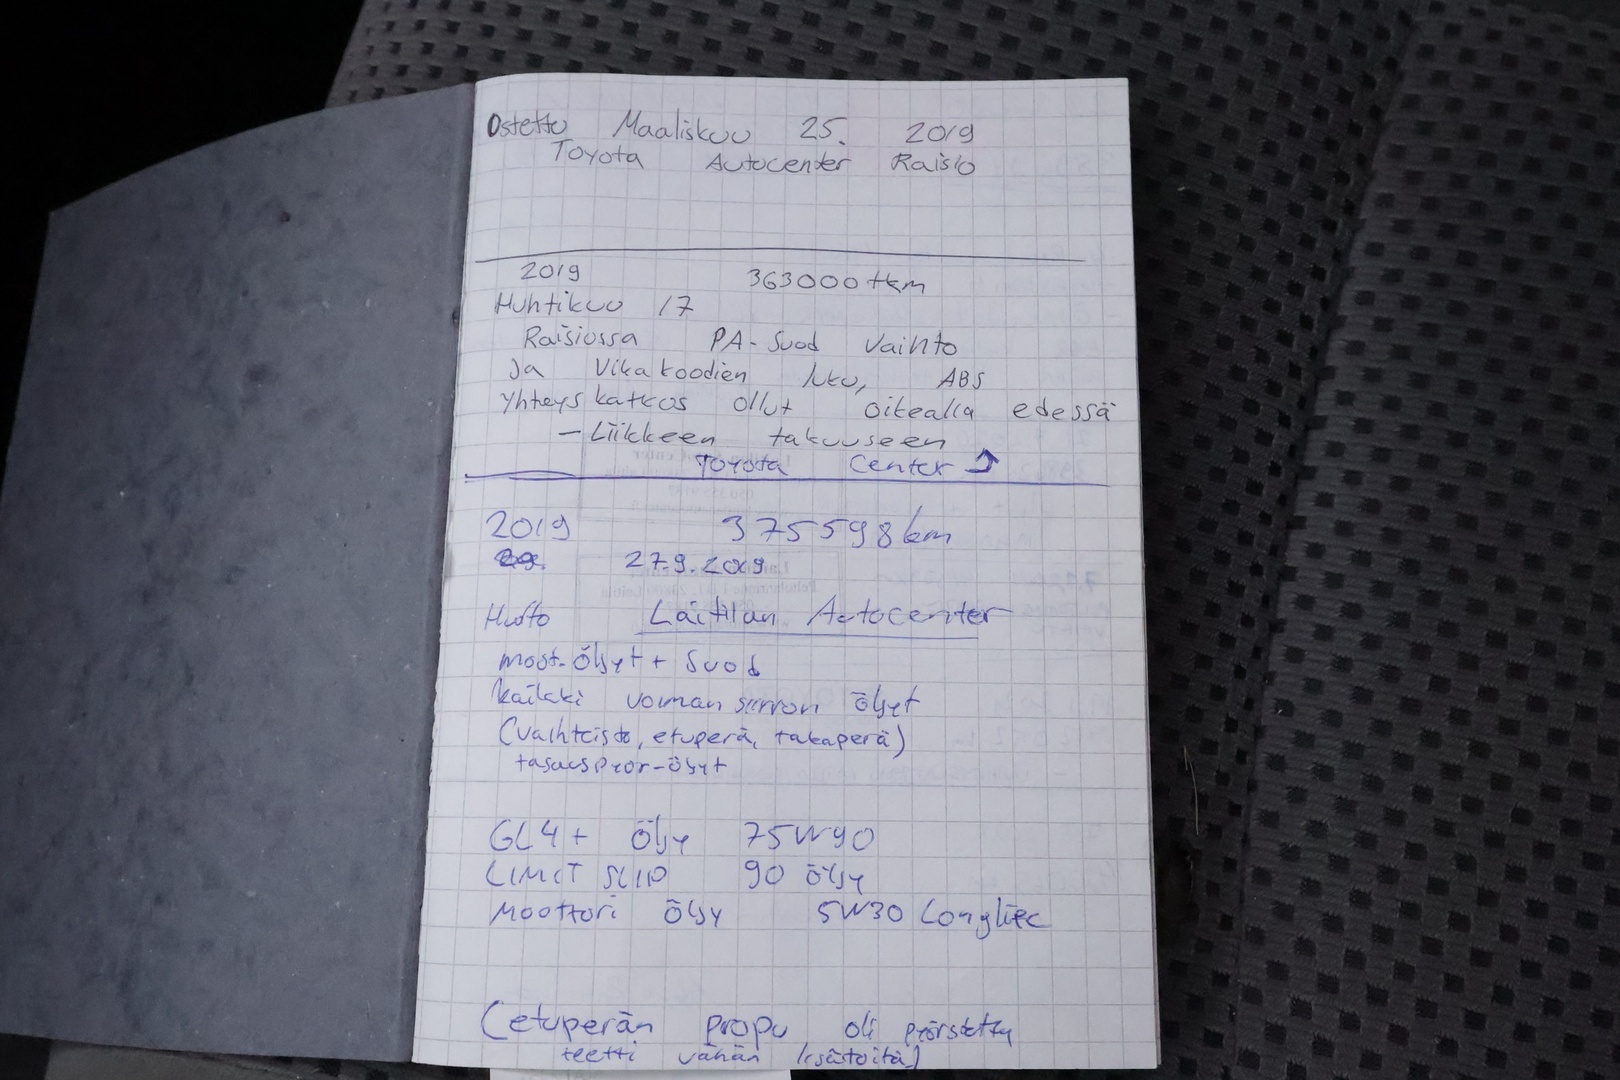 Ostettu Maaliskuu 25. 2019
Toyota Autocenter Raisio
2019 363000 tkm
Huhtikuu 17
Raisiossa PA-Suod vaihto
ja Vikakoodien luku, ABS
Yhteys katkos ollut oikealla edessä
- Liikkeen takuuseen
Toyota Center
2019 375598 km
27.9.2019
Huolto Laitilan Autocenter
moot-öljyt + Suod
kaikki voiman siirron öljyt
(vaihteisto, etuperä, takaperä)
tasauspyör-öljyt
GL4+ öljy 75W90
LIMIT SLIP 90 öljy
Moottori öljy 5W30 Longlife
(etuperän propu oli pyöristetty
teetti vähän lisätöitä)